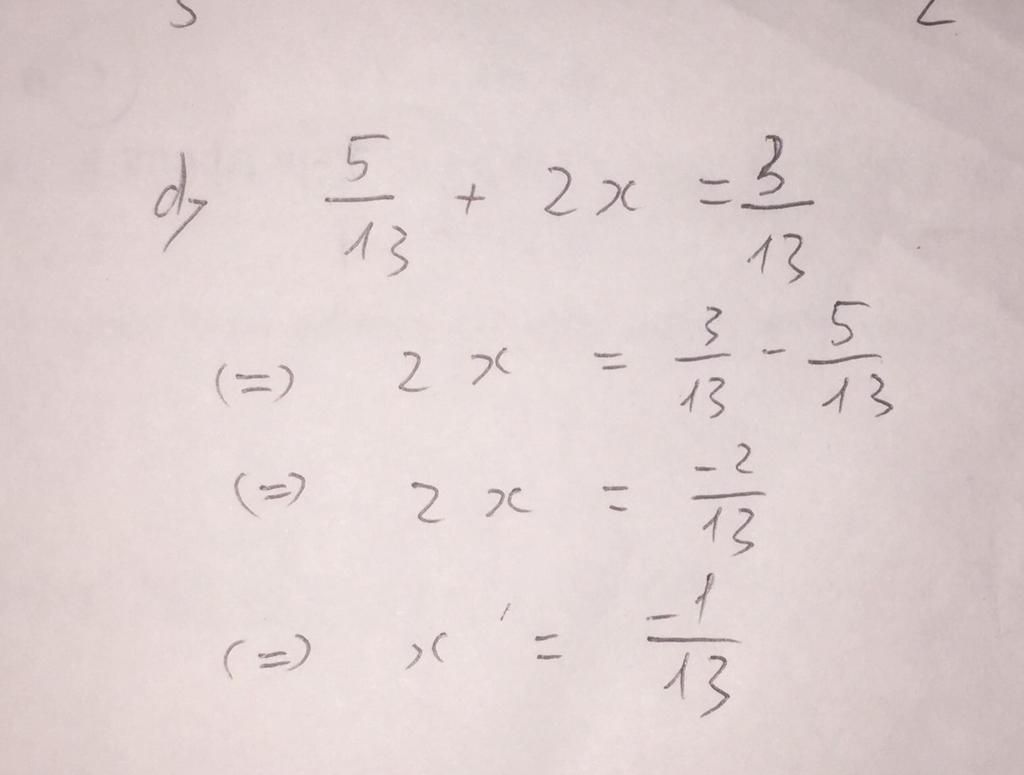 d, 5/13 + 2x = 3/13
(=) 2x = 3/13 - 5/13
(=) 2x = -2/13
(=) x = -1/13